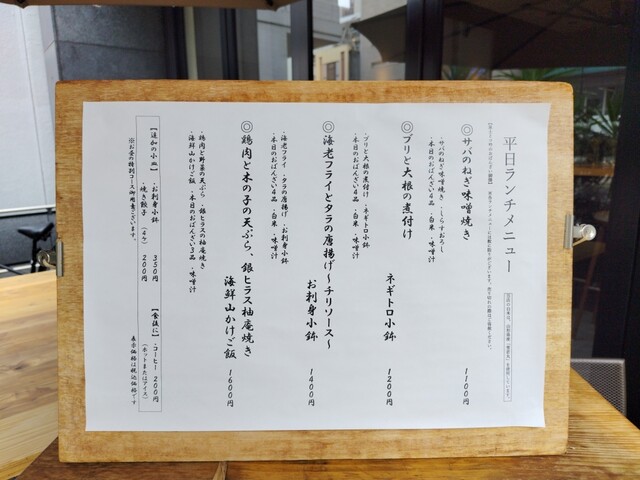 平日ランチメニュー
◎サバのねぎ味噌焼き 1100円
・サバのねぎ味噌焼き ・しらすおろし
・本日のおばんざい4品 ・白米 ・味噌汁
◎ブリと大根の煮付け
ネギトロ小鉢 1200円
・ブリと大根の煮付け ・ネギトロ小鉢
・本日のおばんざい4品 ・白米 ・味噌汁
◎海老フライとタラの唐揚げ〜チリソース〜
お刺身小鉢 1400円
・海老フライ ・タラの唐揚げ ・お刺身小鉢
・本日のおばんざい4品 ・白米 ・味噌汁
◎鶏肉と木の子の天ぷら、銀ヒラス柚庵焼き
海鮮山かけご飯 1600円
・鶏肉と野菜の天ぷら ・銀ヒラスの柚庵焼き
・海鮮山かけご飯 ・本日のおばんざい3品 ・味噌汁
【追加の小皿】 ・お刺身小鉢 350円 【食後に】 ・コーヒー 200円
・焼き餃子(4ケ) 200円 (ホットまたはアイス)
※お昼の特別コース御用意ございます。 表示価格は税込価格です